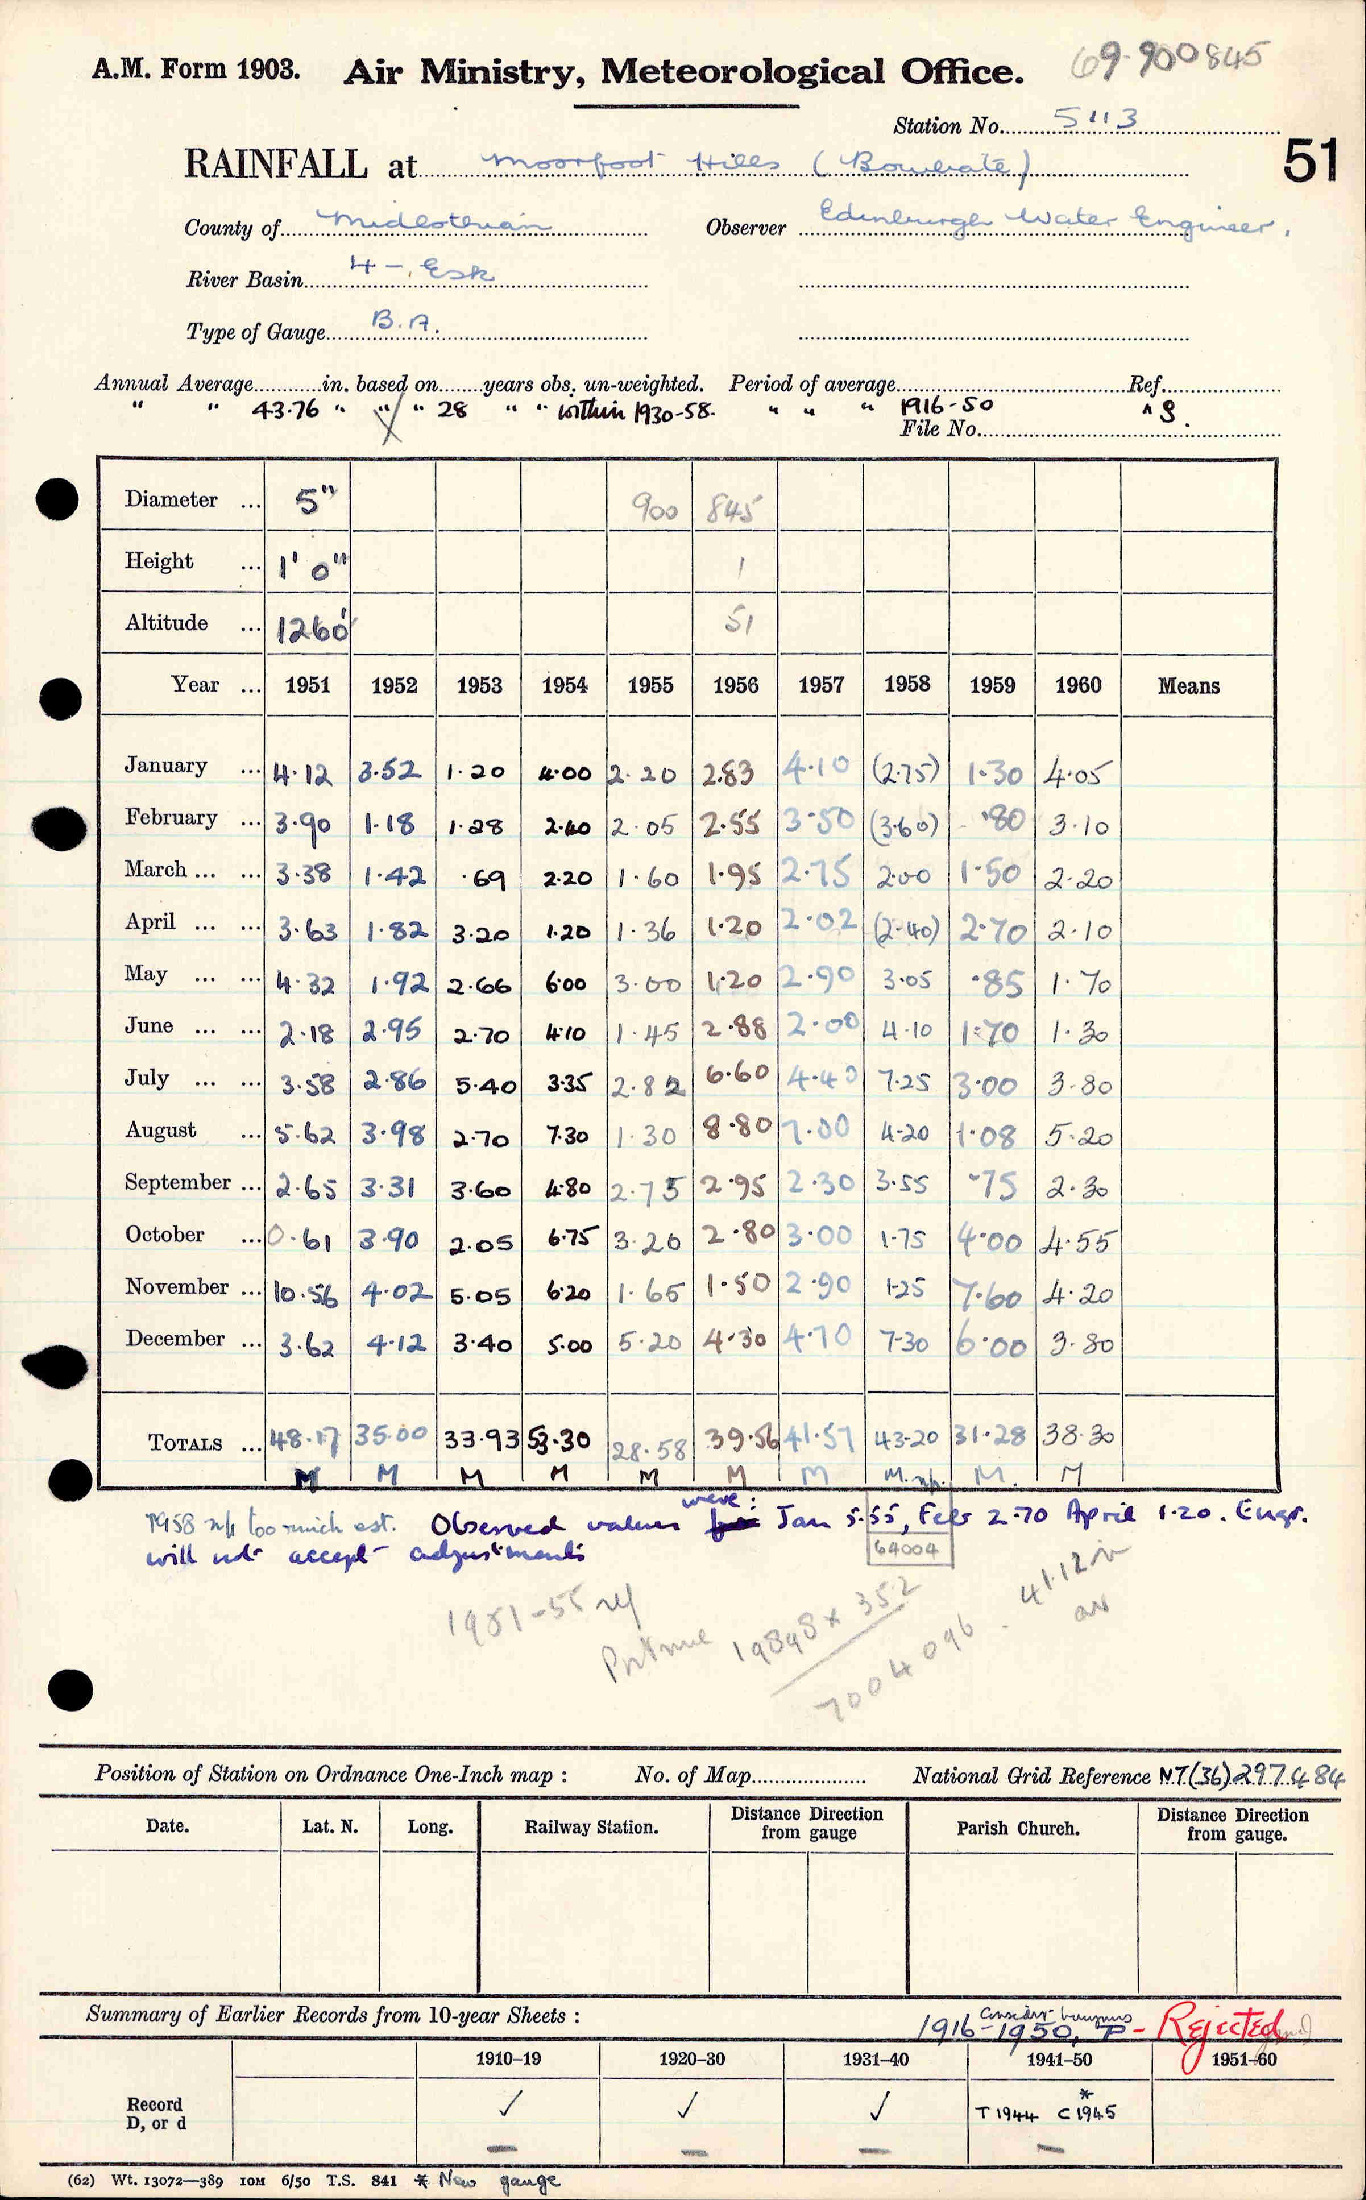 A.M. Form 1903. Air Ministry, Meteorological Office. 69.900845
Station No. 5113
51
RAINFALL at Moorfoot Hills (Bowbate)
County of Midlothian Observer Edinburgh Water Engineer.
River Basin 4 - Esk
Type of Gauge B.A.
Annual Average in. based on years obs. un-weighted. Period of average Ref.
" " 43.76 " " " 28 " " within 1930-58. " " " 1916-50 " S.
File No.
Diameter ... 5" 900 845
Height ... 1' 0" 1
Altitude ... 1260' 51
Year ... 1951 1952 1953 1954 1955 1956 1957 1958 1959 1960 Means
January ... 4.12 3.52 1.20 4.00 2.20 2.83 4.10 (2.75) 1.30 4.05
February ... 3.90 1.18 1.28 2.40 2.05 2.55 3.50 (3.60) .80 3.10
March ... ... 3.38 1.42 .69 2.20 1.60 1.95 2.75 2.00 1.50 2.20
April ... ... 3.63 1.82 3.20 1.20 1.36 1.20 2.02 (2.40) 2.70 2.10
May ... ... 4.32 1.92 2.66 6.00 3.00 1.20 2.90 3.05 .85 1.70
June ... ... 2.18 2.95 2.70 4.10 1.45 2.88 2.00 4.10 1.70 1.30
July ... ... 3.58 2.86 5.40 3.35 2.82 6.60 4.40 7.25 3.00 3.80
August ... 5.62 3.98 2.70 7.30 1.30 8.80 7.00 4.20 1.08 5.20
September ... 2.65 3.31 3.60 4.80 2.75 2.95 2.30 3.55 .75 2.30
October ... 0.61 3.90 2.05 6.75 3.20 2.80 3.00 1.75 4.00 4.55
November ... 10.56 4.02 5.05 6.20 1.65 1.50 2.90 1.25 7.60 4.20
December ... 3.62 4.12 3.40 5.00 5.20 4.30 4.70 7.30 6.00 3.80
TOTALS ... 48.17 35.00 33.93 53.30 28.58 39.56 41.57 43.20 31.28 38.30
M M M M M M M M. n/p. M. M
1958 n/p too much est. Observed values were: Jan 5.55, Feb 2.70 April 1.20. Engr.
will not accept adjustments
64004
1951-55 ref
Portmore 19898 x 352
7004096 - 41.12 in
av
Position of Station on Ordnance One-Inch map : No. of Map National Grid Reference NT(36)297484
Date. Lat. N. Long. Railway Station. Distance Direction from gauge Parish Church. Distance Direction from gauge.
Summary of Earlier Records from 10-year Sheets :
1916-1950, P - Rejected
1910–19 1920–30 1931–40 1941–50 1951–60
Record D, or d ✓ ✓ ✓ T 1944 C 1945 *
(62) Wt. 13072—389 10M 6/50 T.S. 841 * New gauge